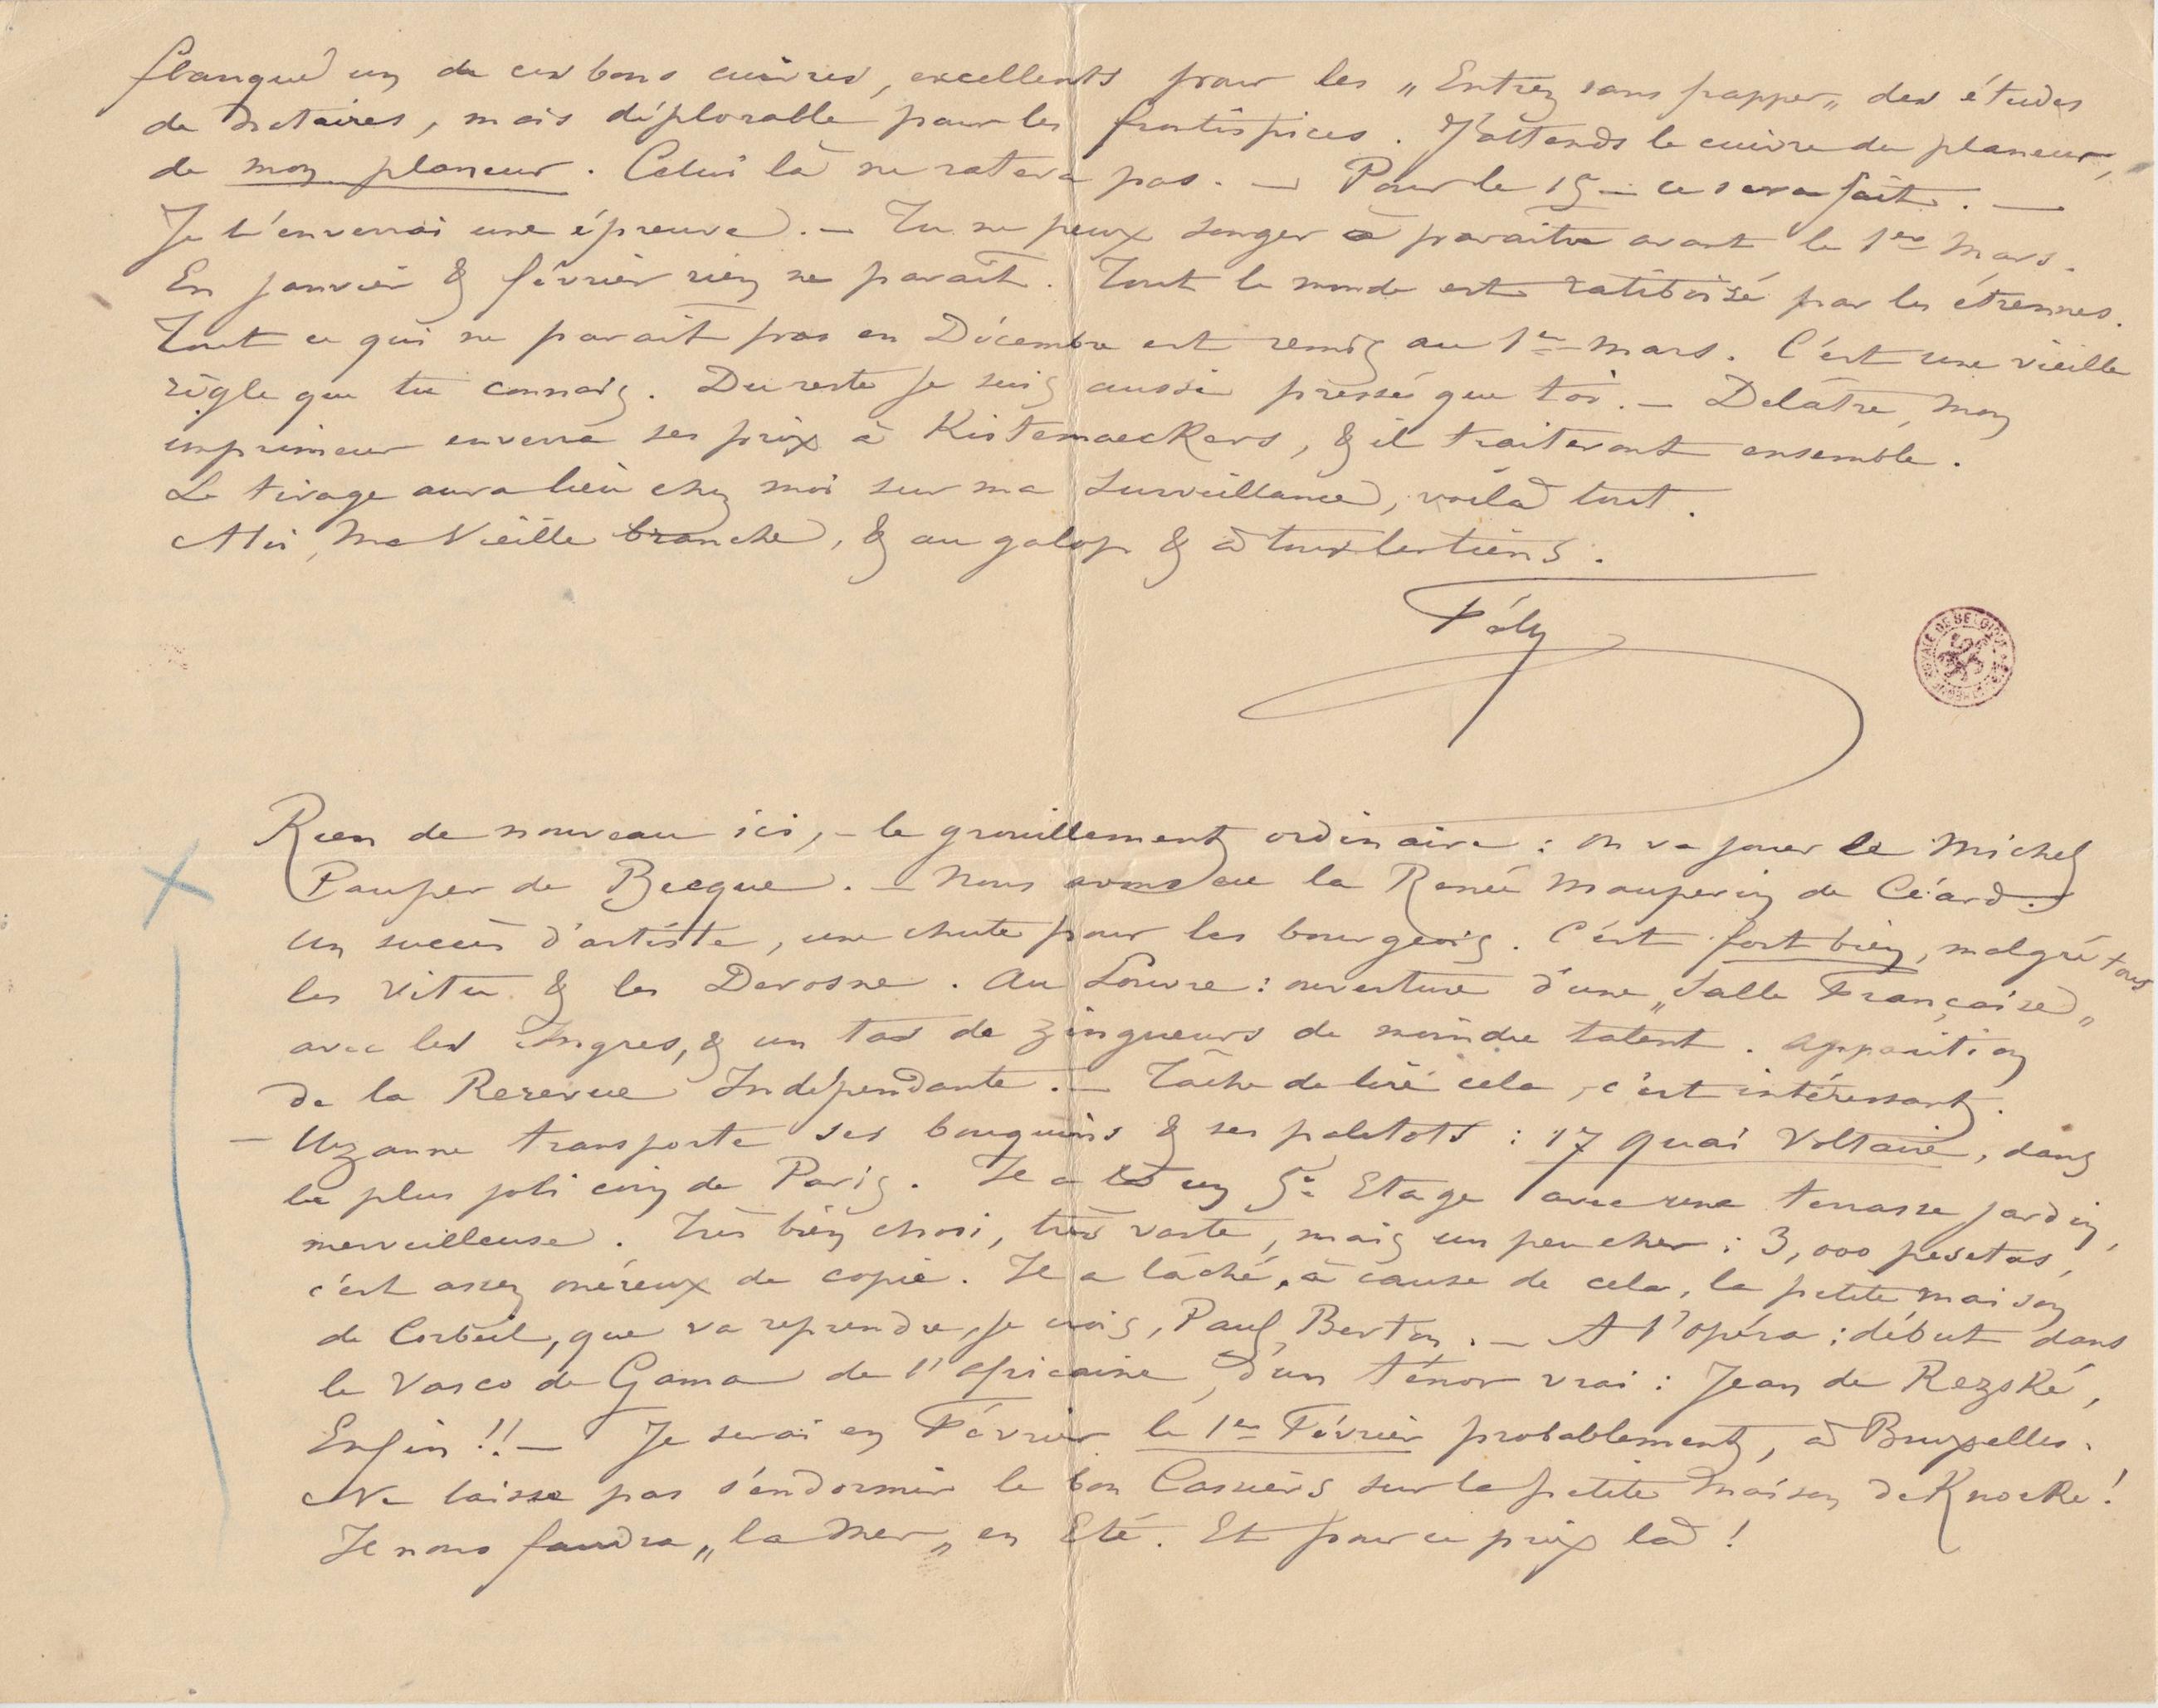 flanqué un de ces bons cuivres, excellents pour les „Entrez sans frapper„ des études
de notaires, mais déplorable pour les frontispices. J'attends le cuivre du planeur,
de mon planeur. Celui là ne ratera pas. — Pour le 15 — ce sera fait. —
Je t'enverrai une épreuve. — Tu ne peux songer à paraître avant le 1er Mars.
En janvier & février rien ne parait. Tout le monde est ratiboisé par les étrennes.
Tout ce qui ne parait pas en Décembre est remis au 1er mars. C'est une vieille
règle que tu connais. Du reste je suis aussi pressé que toi. — Delâtre, mon
imprimeur enverra ses prix à Kistemaeckers, & il traiteront ensemble.
Le tirage aura lieu chez moi sur ma surveillance, voilà tout.
Moi, Ma Vieille branche, & au galop & à tous les tiens.
Fély
ROYALE DE BELGIQUE
Rien de nouveau ici, – le grouillement ordinaire : on va jouer le Michel
Pauper de Becque. — Nous avons eu la Renée Mauperin de Céard.
Un succès d'artiste, une chute pour les bourgeois. C'est fort bien, malgré tous
les Vitu & les Derosne. Au Louvre : ouverture d'une „Salle Française„
avec les Ingres, & un tas de zingueurs de moindre talent. Apparition
de la Rerevue Indépendante. — Tâche de lire cela, c'est intéressant.
— Uzanne transporte ses bouquins & ses paletots : 17 Quai Voltaire, dans
le plus joli coin de Paris. Il a un 5e Etage avec une terrasse jardin,
merveilleuse. Très bien choisi, très vaste, mais un peu cher : 3,000 pesetas,
c'est assez onéreux de copie. Il a lâché, à cause de cela, la petite maison
de Corbeil, que va reprendre, je crois, Paul Berton. — A l'opéra : début dans
le Vasco de Gama de l'Africaine, d'un ténor vrai : Jean de Rezské,
Enfin !! — Je serai en Février le 1er Février probablement, à Bruxelles.
Ne laisse pas s'endormir le bon Cassiers sur la petite maison de Knocke !
Il nous faudra „la Mer„ en Eté. Et pour ce prix là !